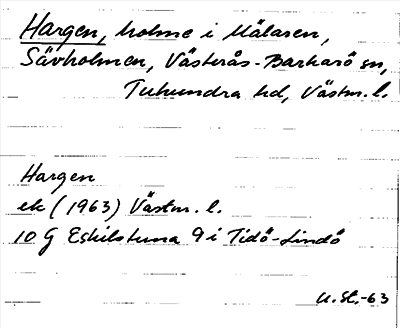 Hargen, holme i Mälaren,
Sävholmen, Västerås-Barkarö sn,
Tuhundra hd, Västm. l.
Hargen
ek (1963) Västm. l.
10 G Eskilstuna 9 i Tidö-Lindö
U. St. -63